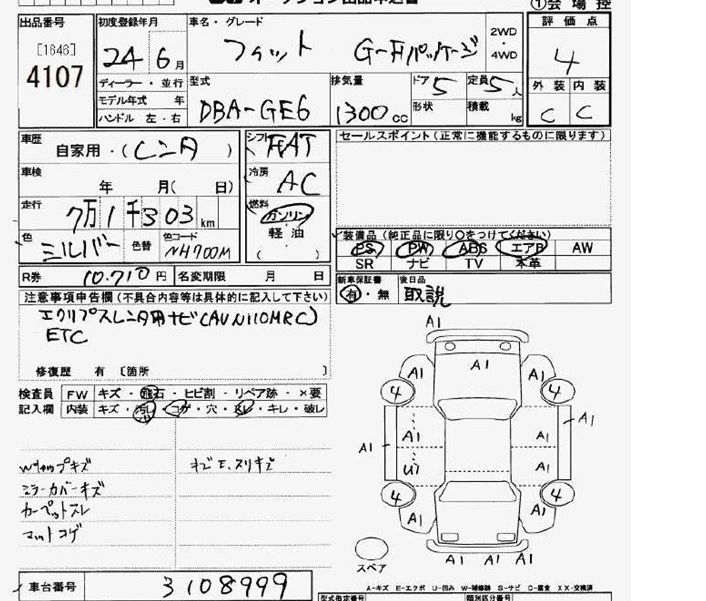 ①会場控
出品番号
[1646]
4107
初度登録年月
24年6月
車名・グレード
フィット G-Fパッケージ
2WD・4WD
評価点
4
ディーラー・並行
モデル年式 年
ハンドル 左・右
型式
DBA-GE6
排気量
1300cc
ドア 5
形状
定員 5人
積載 kg
外装 内装
C C
車歴
自家用・(レンタ)
シフト FAT
セールスポイント(正常に機能するものに限ります)
車検
年 月( 日)
冷房 AC
走行
7万1千303km
燃料
ガソリン
軽油
( )
色 シルバー 色替 色コード NH700M
装備品(純正品に限り○をつけてください)
PS PW ABS エアB AW
SR ナビ TV 本革
R券 10.710円 名変期限 月 日
新車保証書
有・無
後日品
取説
注意事項申告欄(不具合内容等は具体的に記入して下さい)
エクリプスレンタ用ナビ(AVN110MRC)
ETC
修復歴 有〔箇所
検査員 FW キズ・飛石・ヒビ割・リペア跡・×要
記入欄 内装 キズ・汚レ・コゲ・穴・スレ・キレ・破レ
ミラーカバーキズ
カーペットスレ
マットコゲ
A1
A1
A1 A1
4 4
A1 A1 A1 A1
U1 A1
4 4
A1 A1
A1 A1 A1
スペア
A-キズ E-エクボ U-凹み W-補修跡 S-サビ C-腐食 XX-交換済
車台番号 3108999
型式指定番号 類別区分番号